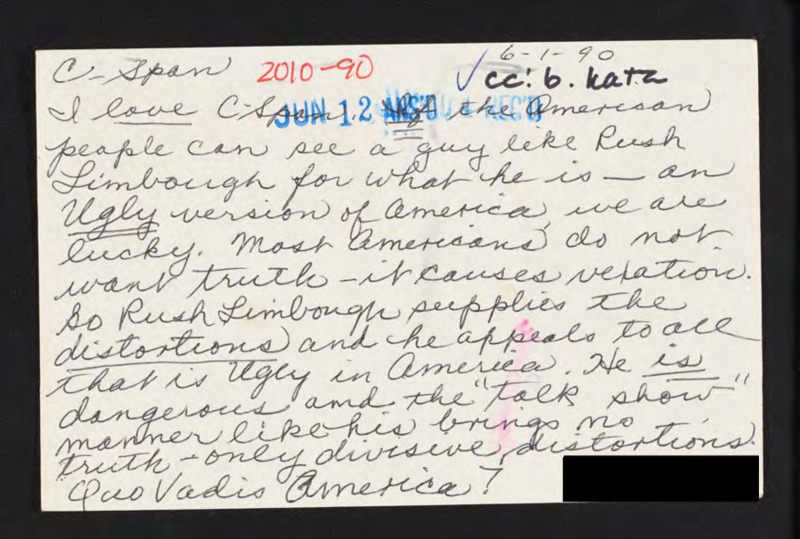 6-1-90
C-Span 2010-90 cc: b. katz
I love C-Span. If the American
JUN 12 ANS'D REC'D
people can see a guy like Rush
Limbough for what he is — an
Ugly version of America, we are
lucky. Most Americans do not
want truth - it causes vexation.
So Rush Limbough supplies the
distortions and he appeals to all
that is Ugly in America. He is
dangerous and the "talk show"
manner like his brings no
truth - only divisive distortions.
Quo Vadis America?